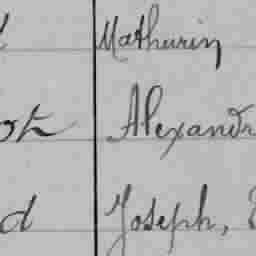 Mathurin
Alexandr
d Joseph,